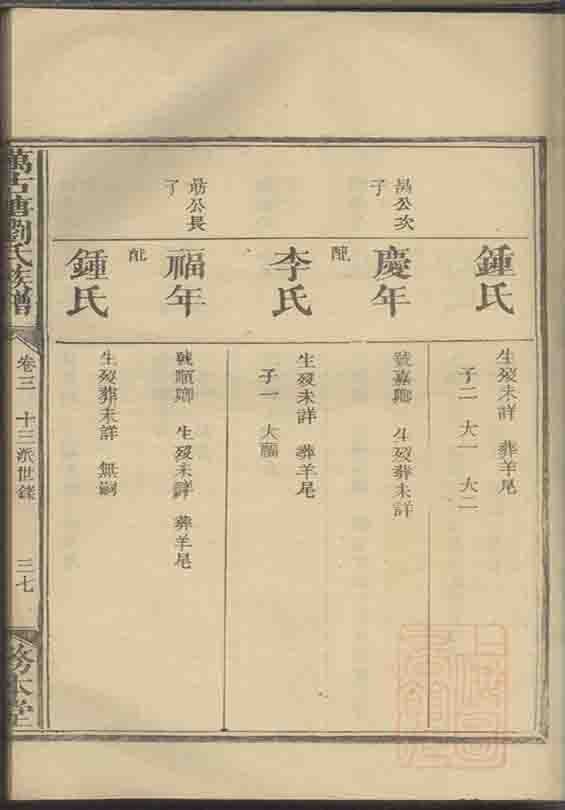 鍾氏
生歿未詳 葬羊尾
子二 大一 大二
公次
子
慶年
號嘉卿 生歿葬未詳
配
李氏
生歿未詳 葬羊尾
子一 大福
公長
子
福年
號順卿 生歿未詳 葬羊尾
配
鍾氏
生歿葬未詳 無嗣
萬古塘劉氏族譜
卷三 十三派世錄
三七
務本堂